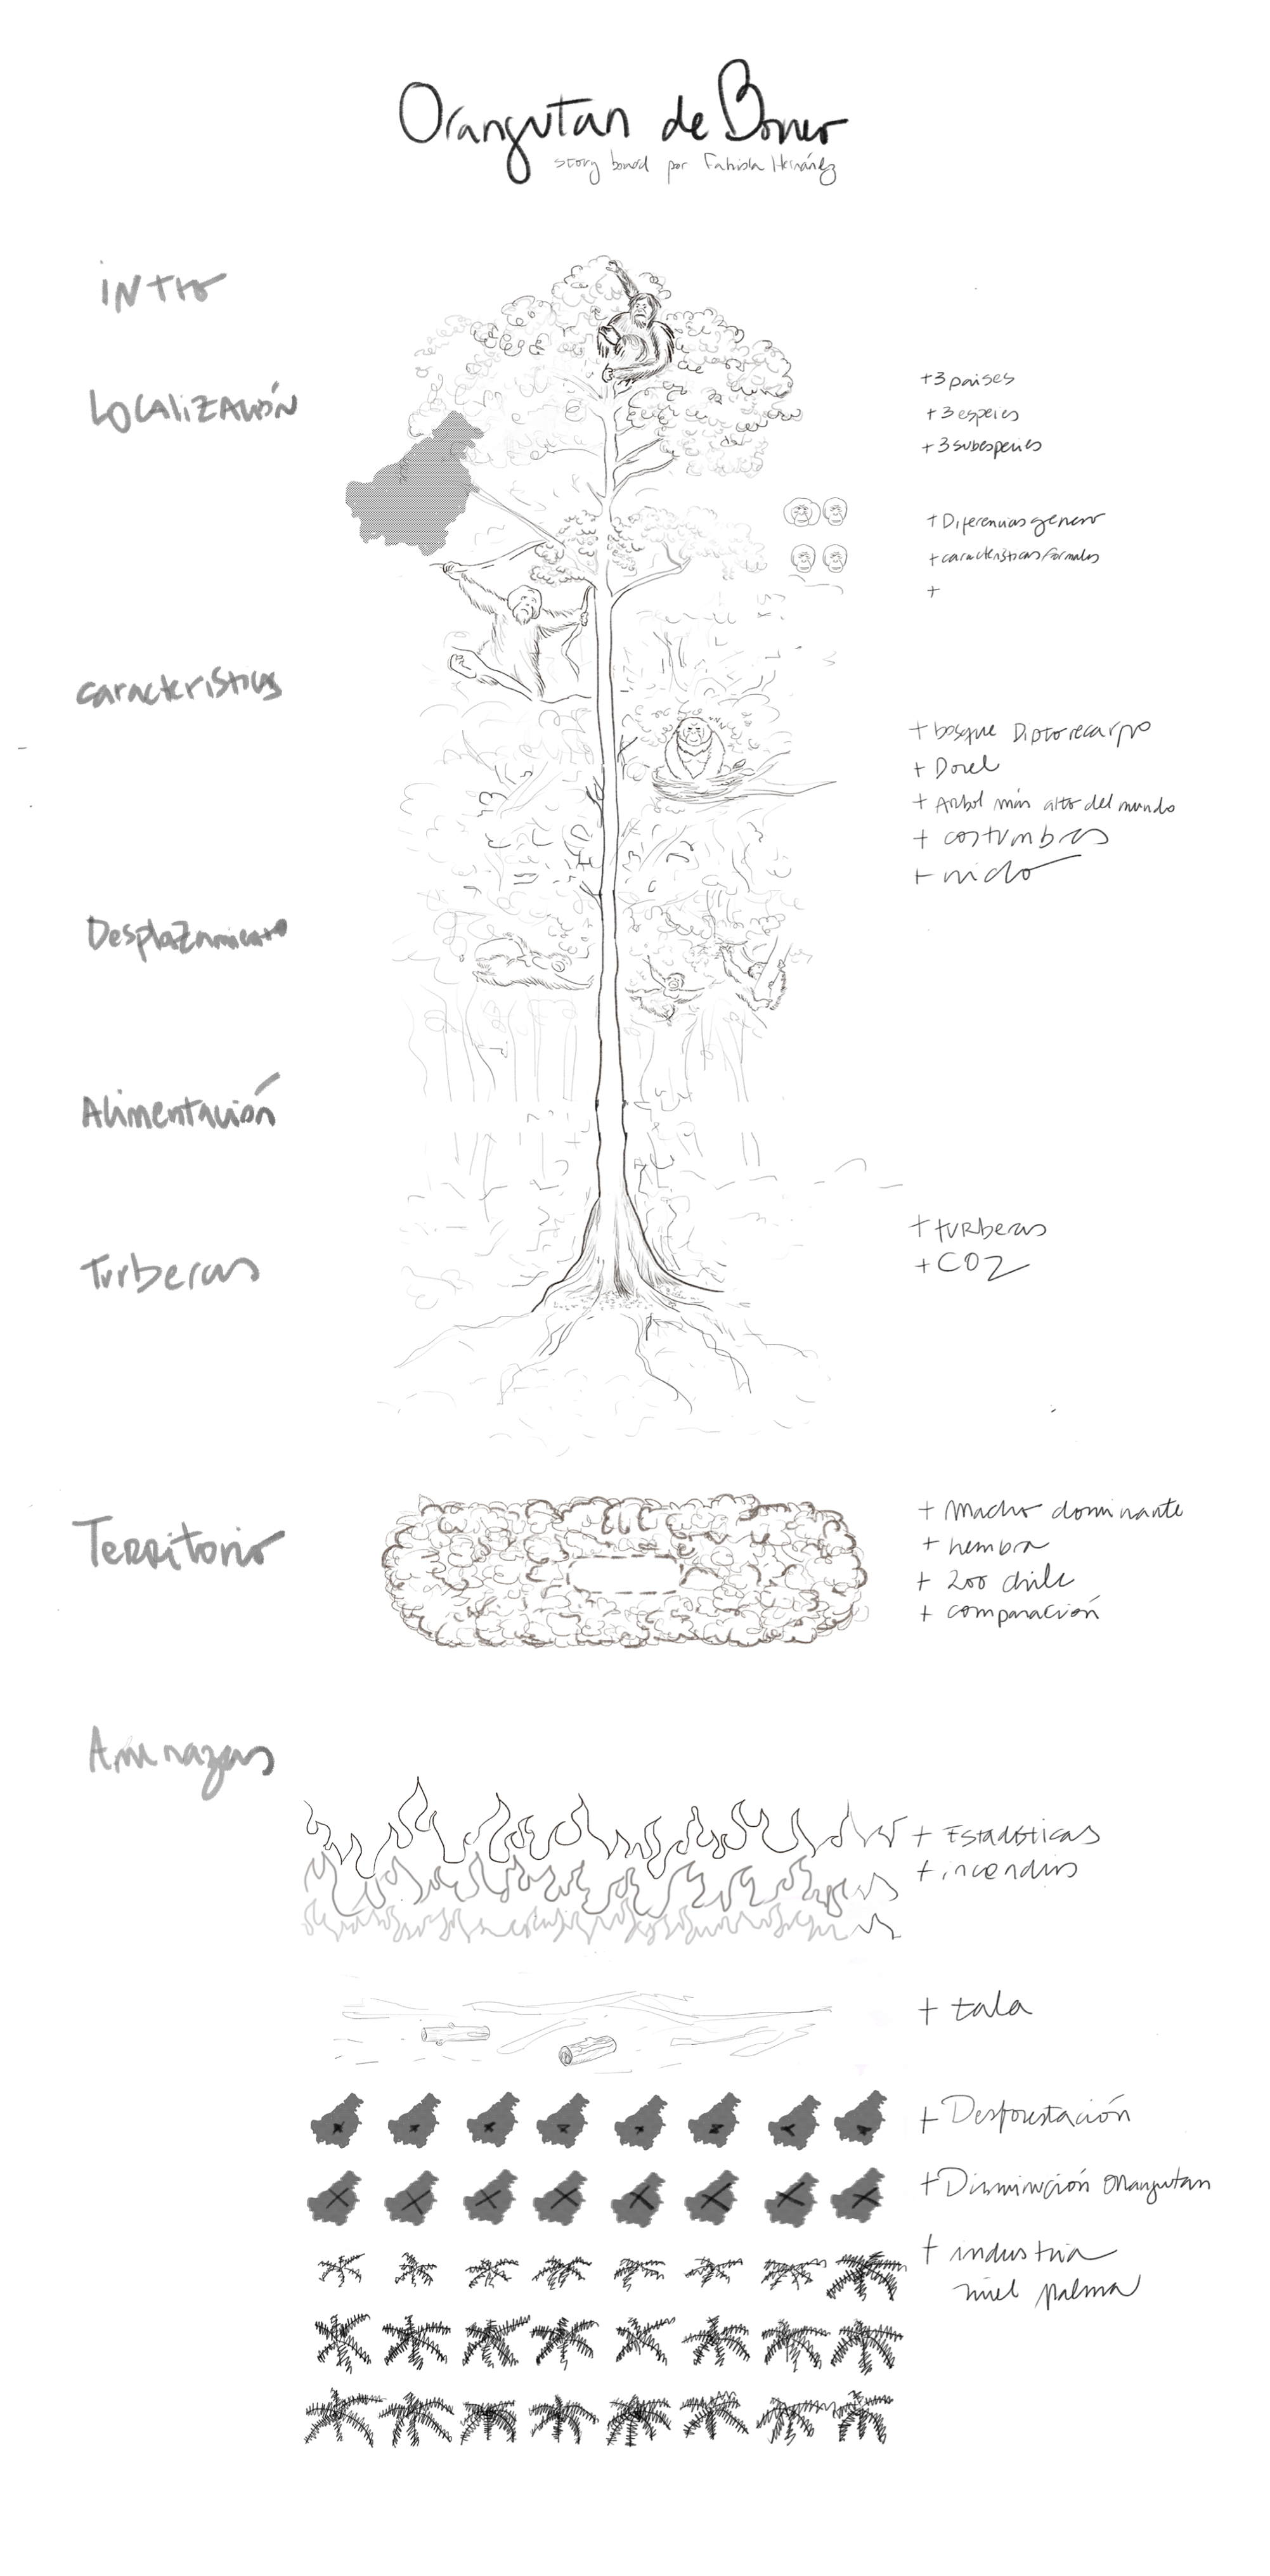 Orangutan de Borneo
story board por Fabiola Hernández
INTro
LOCALIZACIÓN
+3 paises
+3 especies
+3 subespecies
+ Diferencias genero
+ características formales
+
características
+ bosque Diptorecarpo
+ Dosel
+ Arbol más alto del mundo
+ costumbres
+ nido
Desplazamiento
Alimentación
Turberas
+ turberas
+ CO2
Territorio
+ Macho dominante
+ hembra
+ zoo chile
+ comparación
Amenazas
+ Estadísticas
+ incendios
+ tala
+ Desforestación
+ Disminución orangutan
+ industria
palma